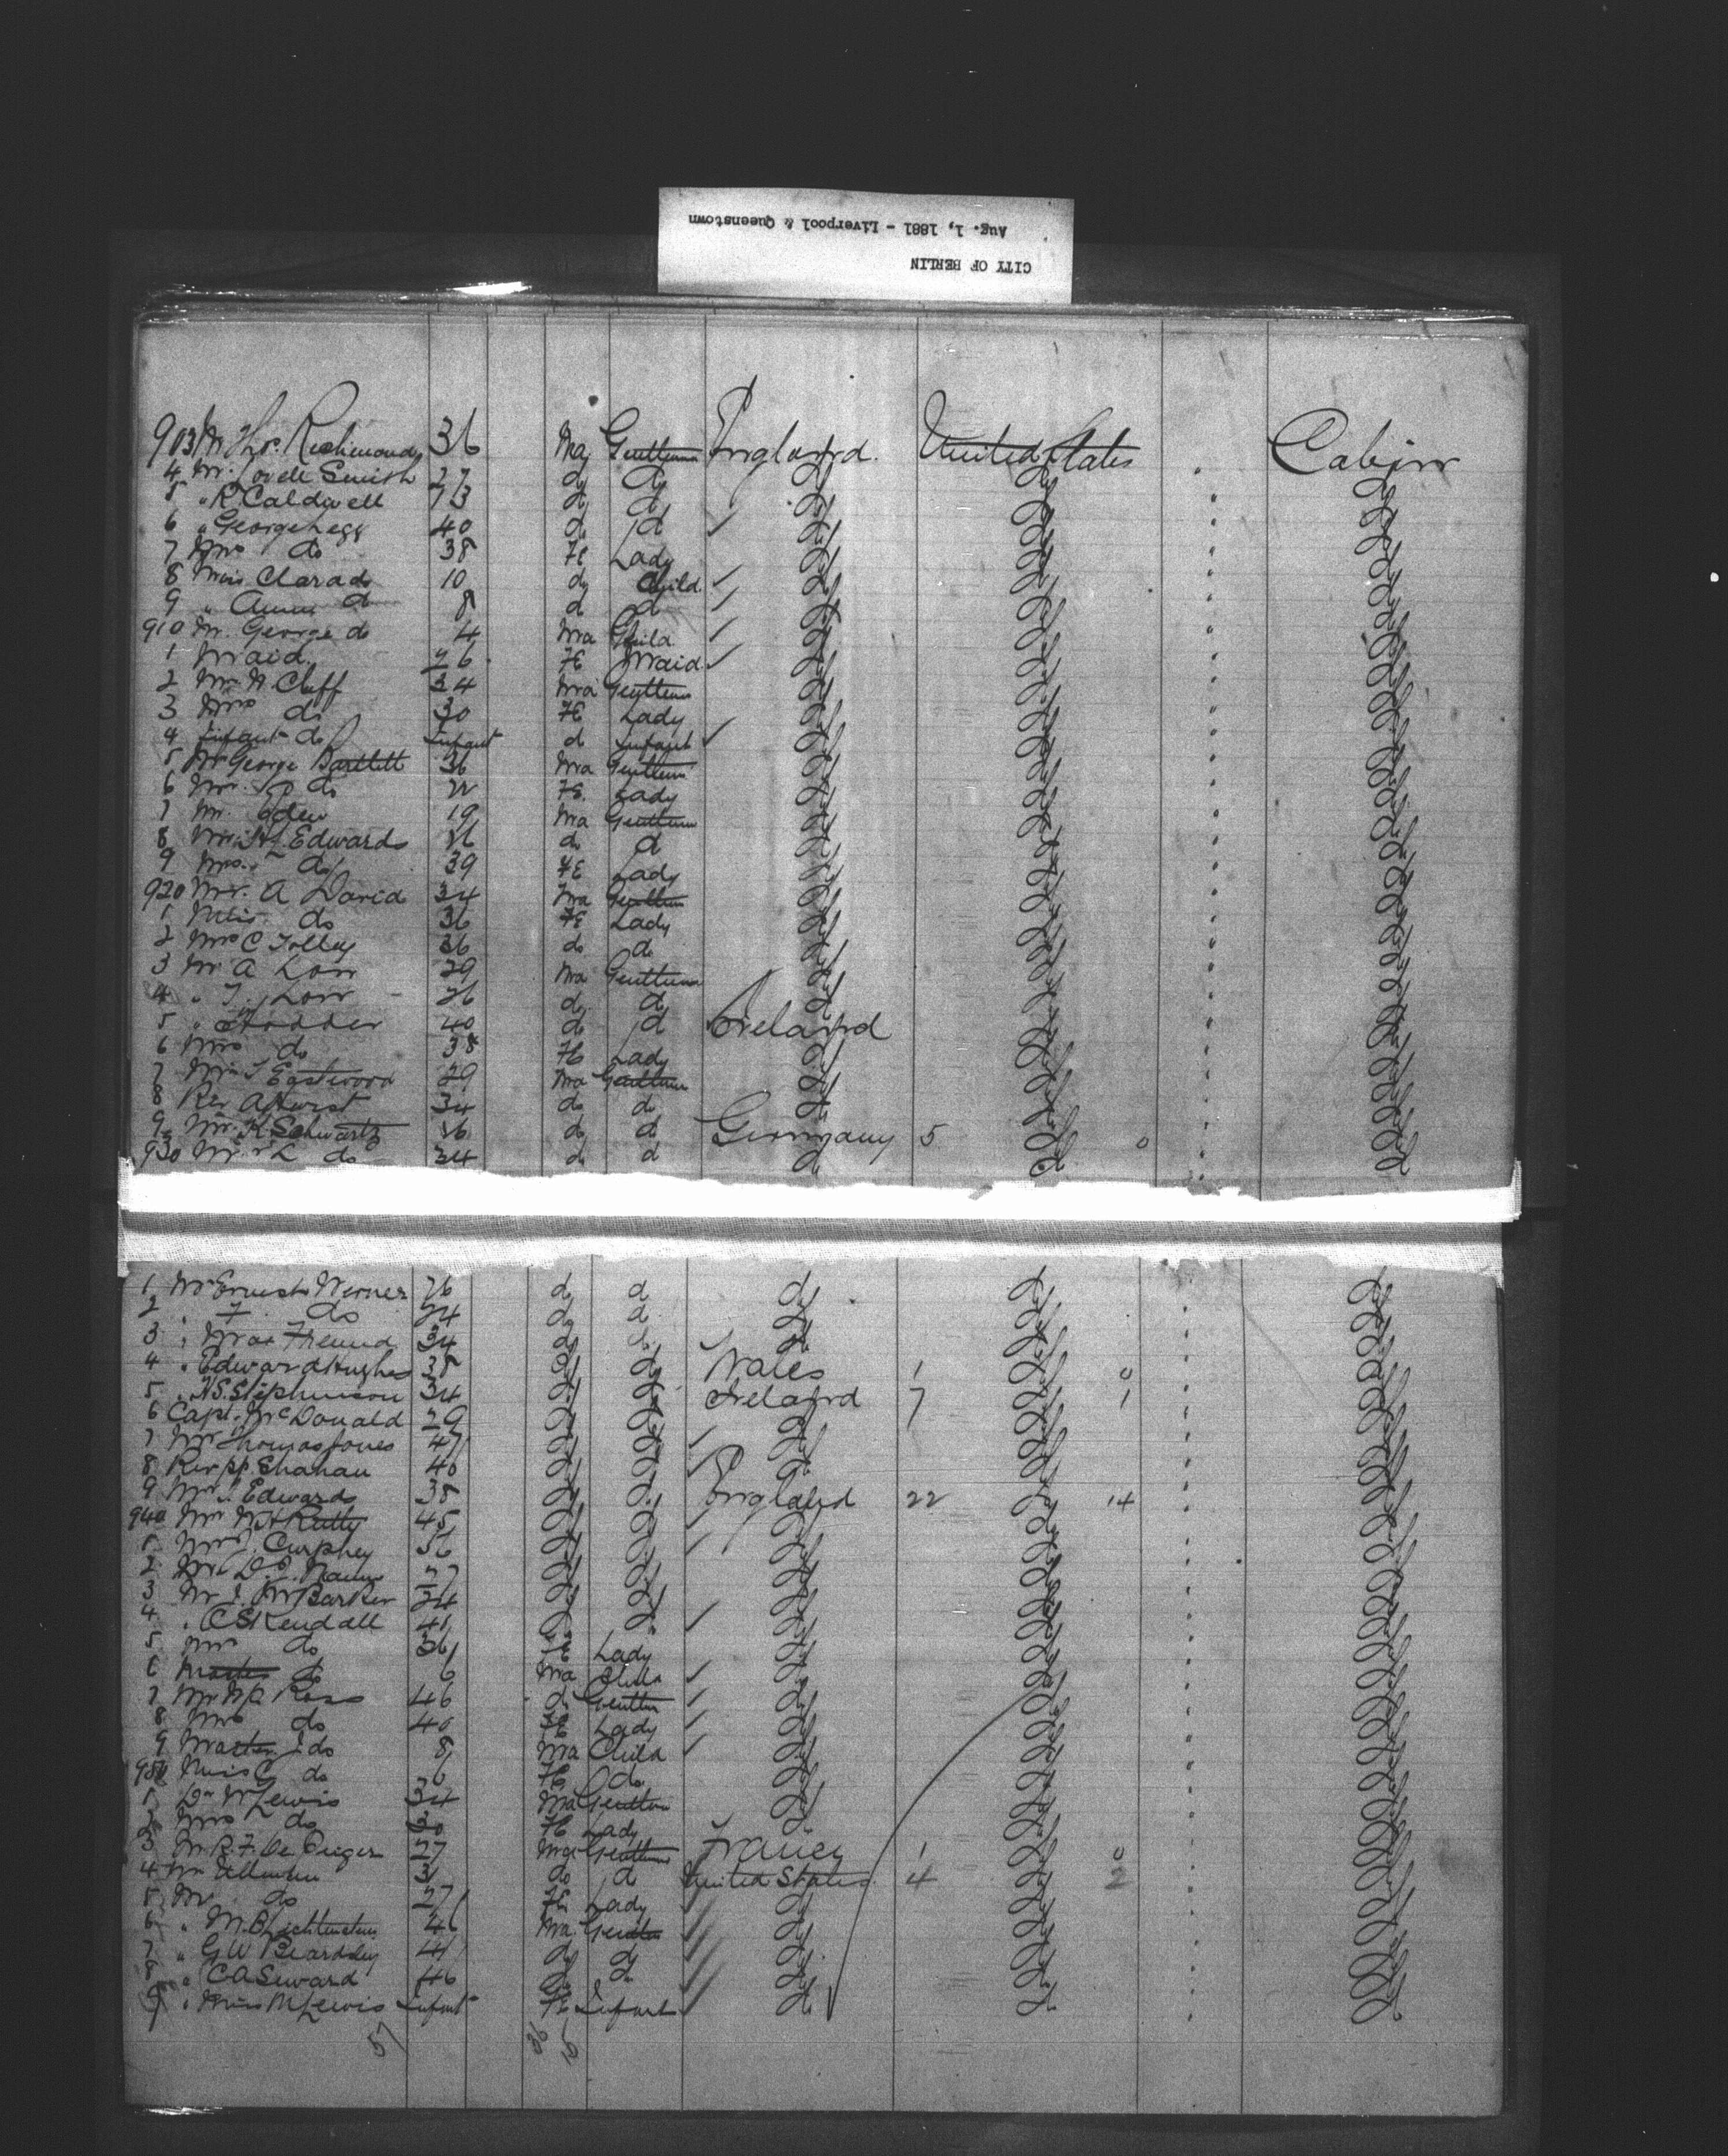 CITY OF BERLIN
Aug. 1, 1881 - Liverpool & Queenstown
903 Mr Thos. Richmond 36 Ma Gentleman England. United States " Cabin
4 Mr. Lovell Smith 27 do do do do " do
5 " R Caldwell 73 do do do do " do
6 " George Legg 40 do do do do " do
7 Mrs do 38 Fe Lady do do " do
8 Miss Clara do 10 do Child do do " do
9 " Annie do 8 do do do do " do
910 Mr. George do 4 Ma Child do do " do
1 Maid 26 Fe Maid do do " do
2 Mr. N. Cluff 34 Ma Gentleman do do " do
3 Mrs do 30 Fe Lady do do " do
4 Infant do Infant do Infant do do " do
5 Mr George Bartlett 36 Ma Gentleman do do " do
6 do Fe. Lady do do " do
7 Mr. Ogden 19 Ma Gentleman do do " do
8 Edwards 36 do do do do " do
9 Mrs. do 39 Fe Lady do do " do
920 Mr. A David 34 Ma Gentleman do do " do
1 do 36 Fe Lady do do " do
2 Mrs C Tolley 36 do do do do " do
3 Mr A Low 29 Ma Gentleman do do " do
4 " T. Low 26 do do do do " do
5 " Hodder 40 do do Ireland do " do
6 Mrs do 38 Fe Lady do do " do
7 Mr T Eastwood 29 Ma Gentleman do do " do
8 Rev A Hurst 34 do do do do " do
9 Mr. K Schwartz 36 do do Germany 5 do 0 " do
930 Mr L do 34 do do do do " do
1 Mr Ernest Werner 26 do do do do do
2 " F do 24 do do do do " do
3 " Max Freund 34 do do do do " do
4 " Edward Hughes 38 do do Wales 1 do 0 " do
5 " H.S. Stephenson 34 do do Ireland 7 do 1 " do
6 Capt. McDonald 29 do do do do " do
7 Mr Thomas Jones 47 do do do do " do
8 Rev Shahan 40 do do do do " do
9 Mr Edwards 38 do do England 22 do 14 " do
940 Mr Rutty 45 do do do do " do
1 Curphey 56 do do do do " do
2 Mr 27 do do do do " do
3 Mr Barker 24 do do do do " do
4 " C S Kendall 41 do do do do " do
5 Mrs do 36 Fe Lady do do " do
6 Master do 6 Ma Child do do " do
7 Mr Ross 46 do Gentlem do do " do
8 Mrs do 40 Fe Lady do do " do
9 Master J do 8 Ma Child do do " do
950 Miss C do 6 Fe do do do " do
1 Dr W Lewis 34 Ma Gentlem do do " do
2 Mrs do 30 Fe Lady do do " do
3 Mr. R. F. De 27 Ma Gentleman France 1 do 0 " do
4 Mr Ullman 31 do do United States 4 do 2 " do
5 do 27 Fe Lady do do " do
6 " M. B Lichtenstein Ma Gentlem do do " do
7 " G W Beardsley 41 do do do do " do
8 " C A Seward 46 do do do do " do
9 " Miss M Lewis Infant Fe Infant do do " do
57